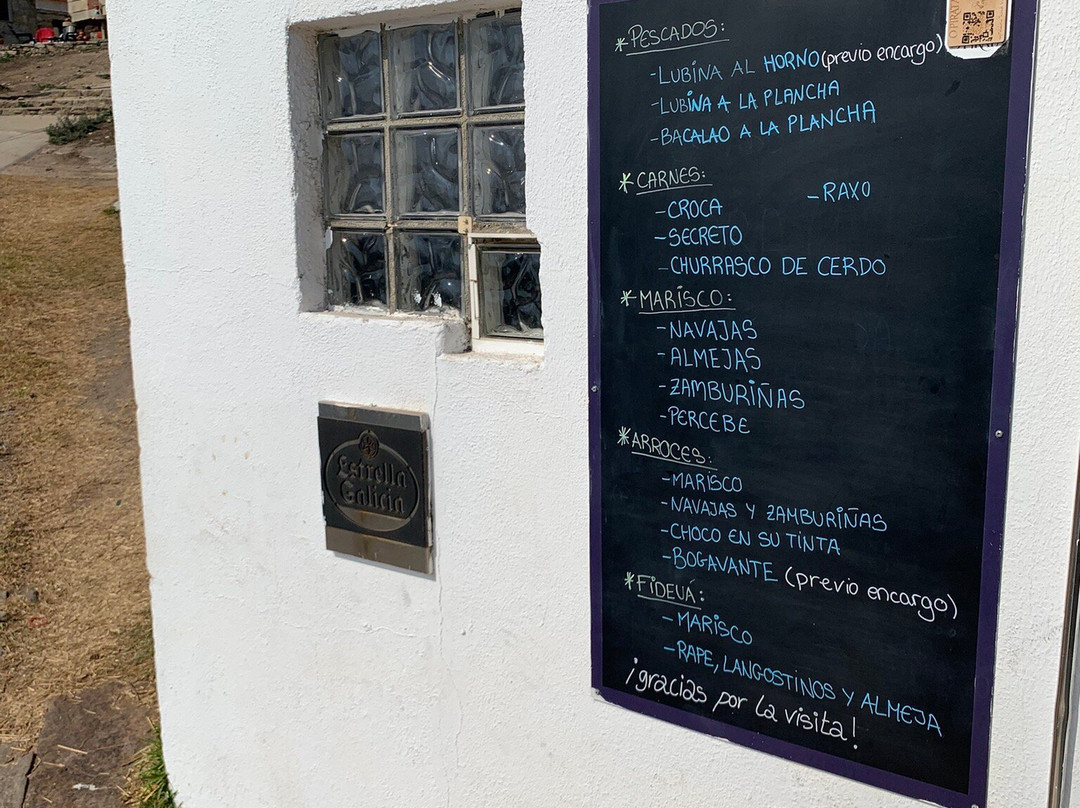 *PESCADOS:
-LUBINA AL HORNO (previo encargo)
-LUBINA A LA PLANCHA
-BACALAO A LA PLANCHA
*CARNES:
-CROCA -RAXO
-SECRETO
-CHURRASCO DE CERDO
*MARISCO:
-NAVAJAS
-ALMEJAS
-ZAMBURIÑAS
-PERCEBE
*ARROCES:
-MARISCO
-NAVAJAS Y ZAMBURIÑAS
-CHOCO EN SU TINTA
-BOGAVANTE (previo encargo)
*FIDEUÁ:
-MARISCO
-RAPE, LANGOSTINOS Y ALMEJA
¡gracias por la visita!
Estrella
Galicia